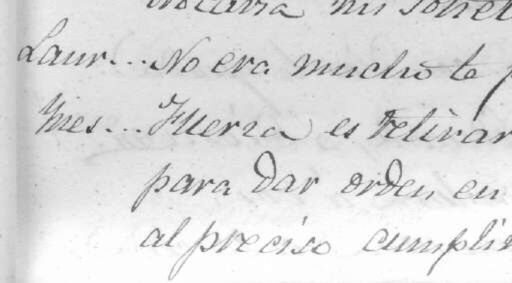 mi
Laur... No era mucho te
Ines... Fuerza es retirar
para dar orden en
al preciso cumplir